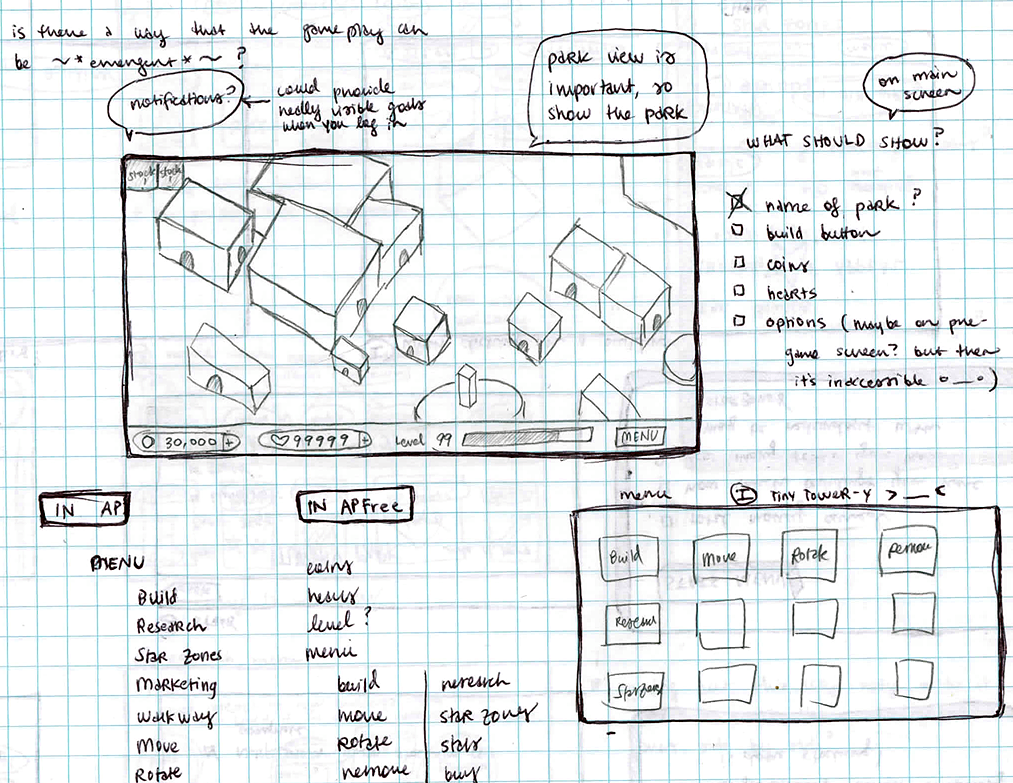 is there a way that the gameplay can
be ~*emergent*~ ?
notifications? ←
could provide
really visible goals
when you log in
park view is
important, so
show the park
on main
screen
WHAT SHOULD SHOW?
name of park ?
build button
coins
hearts
options (maybe on pre-
game screen? but then
it's inaccessible o__o)
stock
stock
30,000 +
♡ 99999 +
Level 99
MENU
IN AP
MENU
Build
Research
Star Zones
Marketing
Walkway
Move
Rotate
IN APFree
coins
hearts
level ?
menu
build
move
Rotate
remove
research
star zones
stars
buy
menu
I Tiny Tower-y >__<
Build
Move
Rotate
Remove
Research